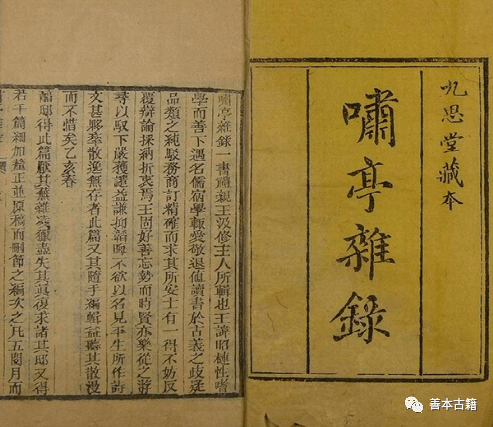 九思堂藏本
嘯亭雜錄
嘯亭雜錄一書禮親王汲修主人所輯也王諱昭槤性嗜
學而善下遇名儒宿學輒愛敬退讀書於古義之歧
品類之純駁務商訂精確而求其所安士有一得不妨反
覆辯論採納折衷焉王固好善忘勢而時賢亦樂從之游
尋以馭下嚴獲譴益謙抑韜晦不欲以名見平生所作詩
文甚夥率散逸無存者此篇又其隨手編輯益聽其散漫
而不惜矣乙亥春
邸得此篇厭其蕪雜凌獵盡失其真復求諸其邸又得
若干篇細加釐正並原稿而刪節之編次之凡五閱月而
善本古籍